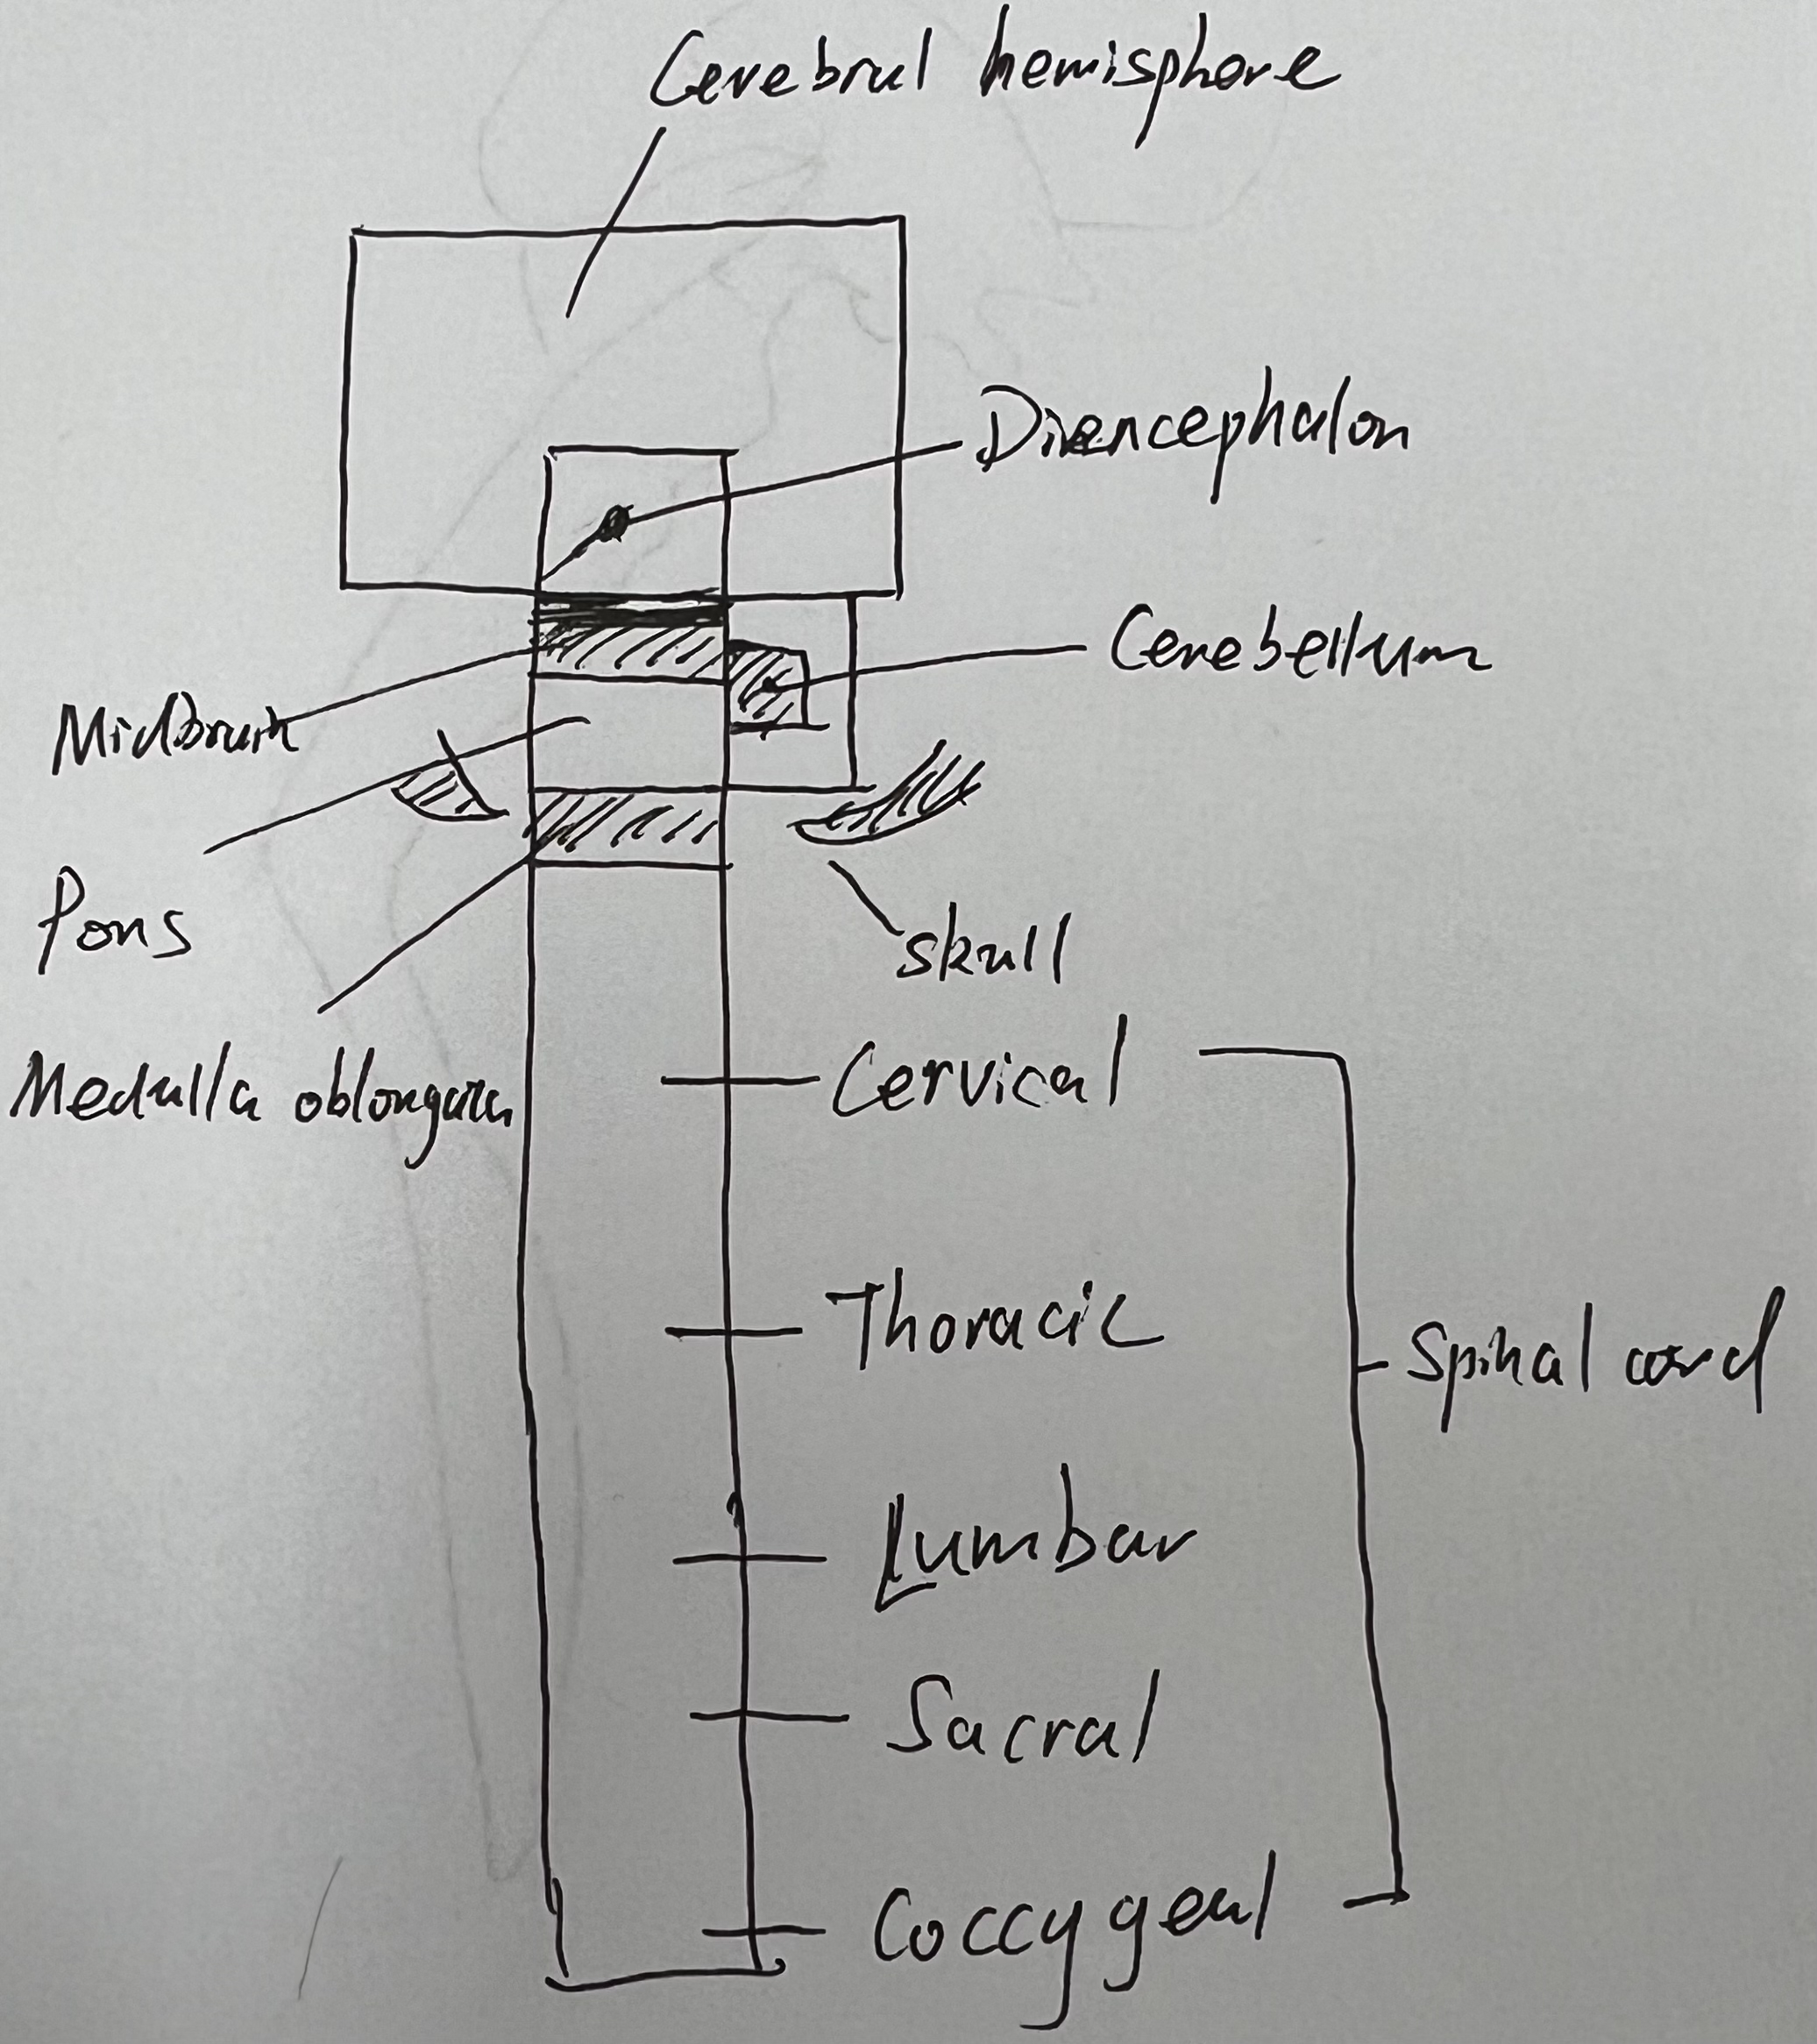 Cerebral hemisphere
Diencephalon
Cerebellum
Midbrain
Pons
skull
Medulla oblongata
Cervical
Thoracic
Spinal cord
Lumbar
Sacral
Coccygeal